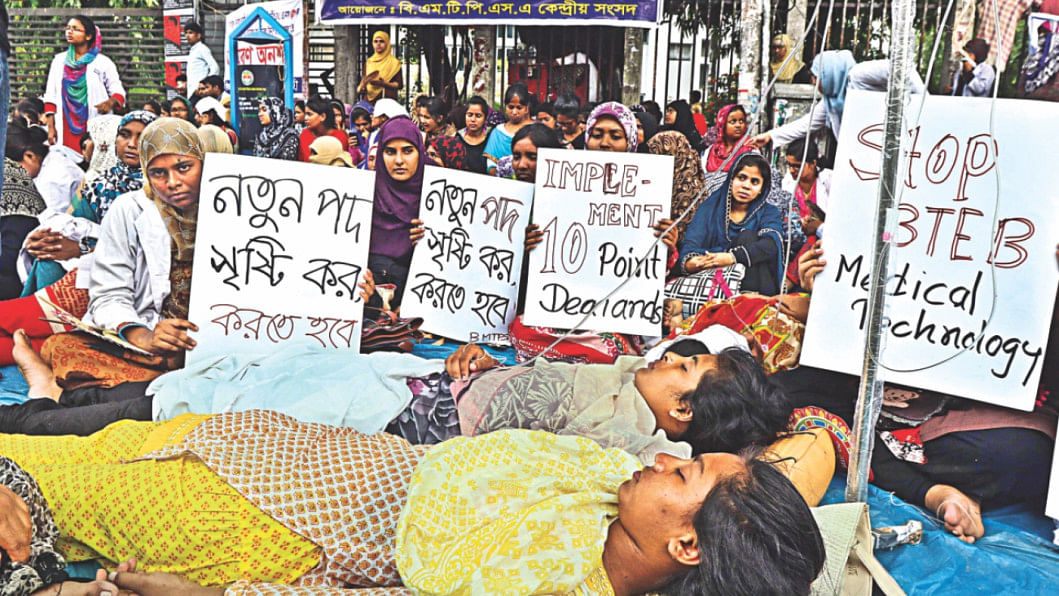 আয়োজনে : বি.এম.টি.পি.এস.এ কেন্দ্রীয় সংসদ
নতুন পদ
সৃষ্টি কর,
করতে হবে
নতুন পদ
সৃষ্টি কর,
করতে হবে
IMPLE-
MENT
10 Point
Demands
STOP
BTEB
Medical
Technology